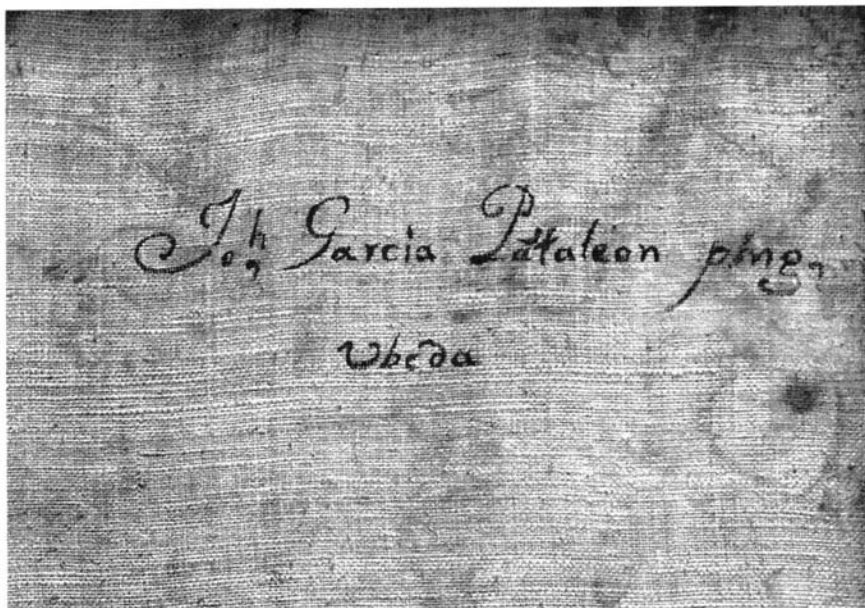 Joh, Garcia Pãtaleon ping,
Ubeda